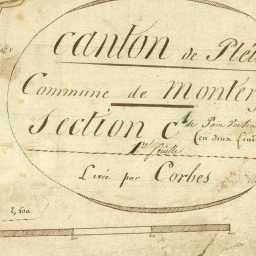 Canton de Plé
Commune de Monter
Section C.
(en deux
1re feuille
Levé par Corbes